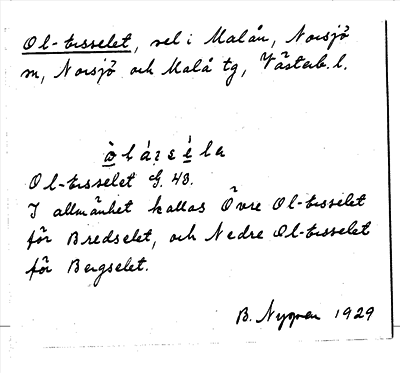 Ol-tisselet, sel i Malån, Norsjö
sn, Norsjö och Malå tg, Västerb. l.
Ol-tisselet G. 43.
I allmänhet kallas Övre Ol-tisselet
för Bredselet, och Nedre Ol-tisselet
för Bergselet.
B. Nygren 1929